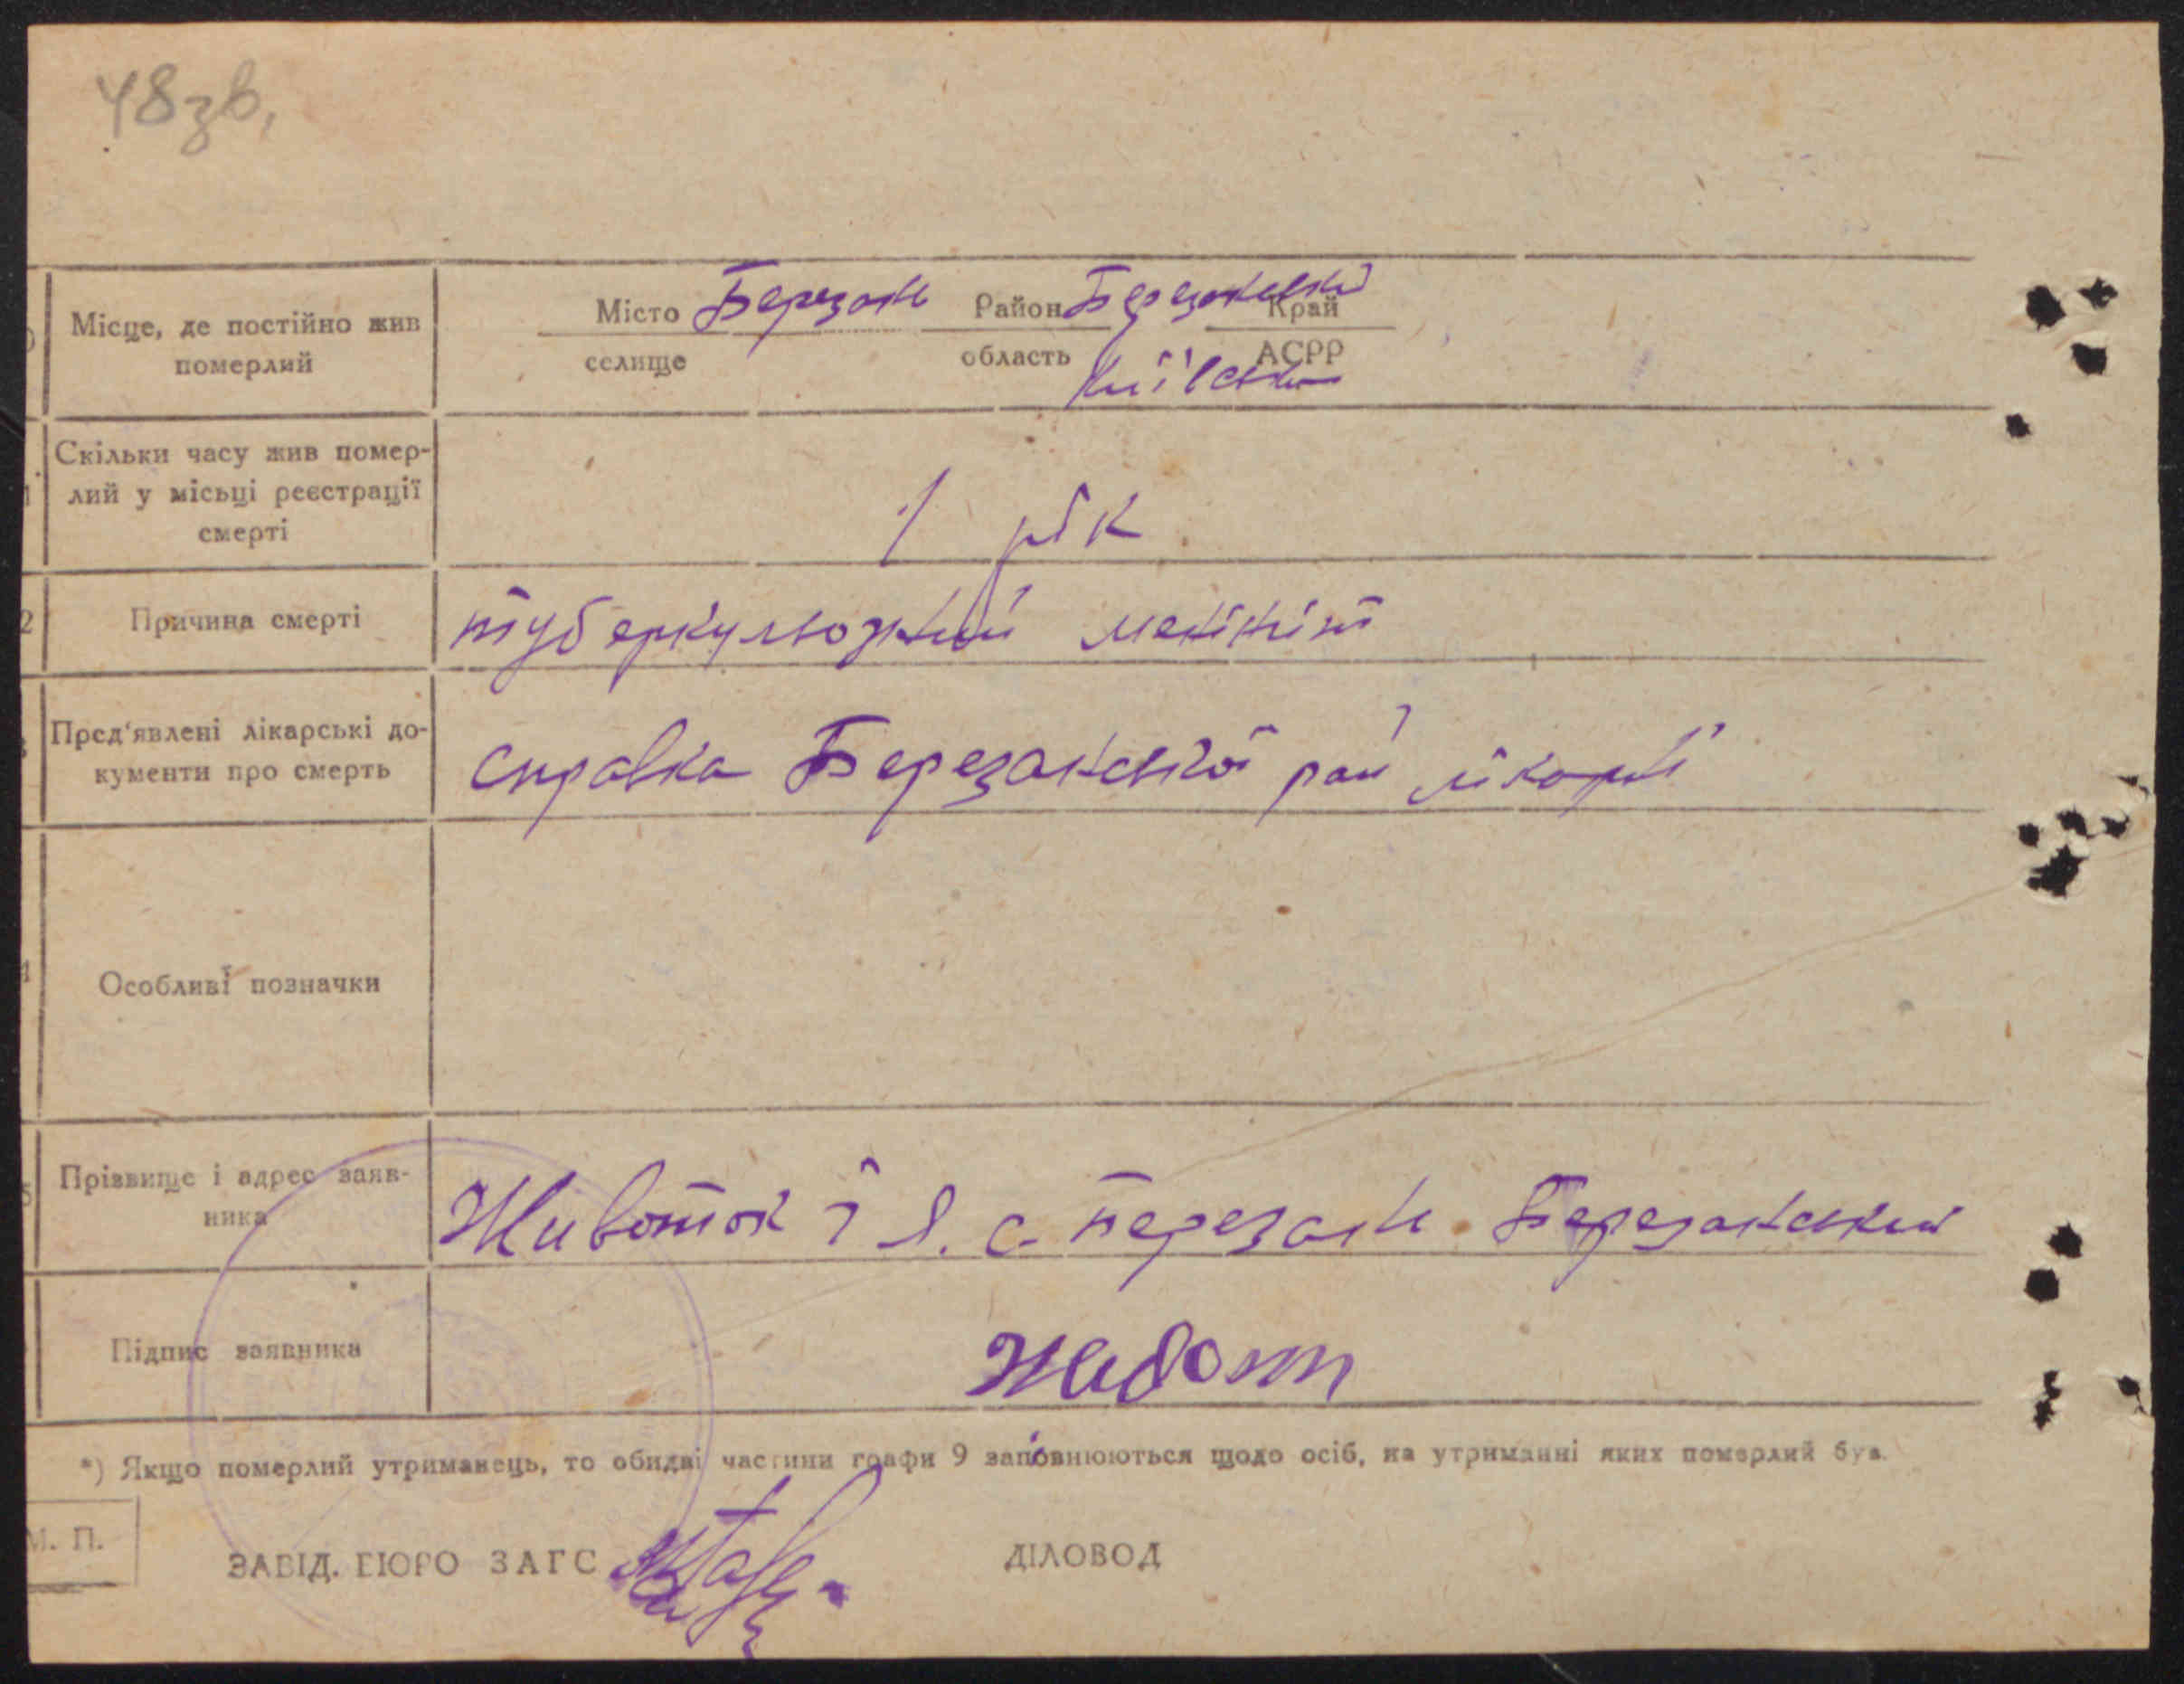 48зв.
Місце, де постійно жив
померлий
Місто Березань Район Березанський Край
селище область АСРР
Київська
Скільки часу жив помер-
лий у місьці реєстрації
смерті
1 рік
2 Причина смерті
туберкульозний менінгіт
Пред'явлені лікарські до-
кументи про смерть
справка Березанської рай лікарні
Особливі позначки
Прізвище і адрес заяв-
ника
Животок І Я. с. Березань Березанський
Підпис заявника
Живот
*) Якщо померлий утриманець, то обидві частини графи 9 заповнюються щодо осіб, на утриманні яких померлий був.
М. П.
ЗАВІД. БЮРО ЗАГС
ДІЛОВОД